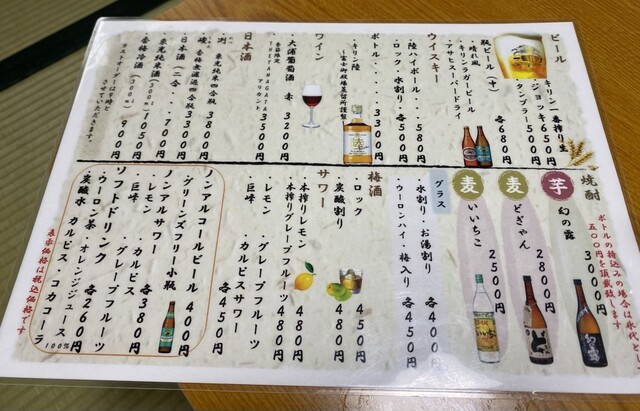 ビール
キリン一番搾り生
ジョッキ 650円
タンブラー 500円
瓶ビール(中) 各680円
・晴れ風
・キリンラガービール
・アサヒスーパードライ
ウイスキー
・陸ハイボール・・・580円
・ロック・水割り・各500円
ボトル・・・3300円
・キリン陸
～富士御殿場蒸留所謹製～
ワイン
・大浦葡萄酒 赤 3200円
THE YAMAGATA
アリカント 3500円
日本酒
・東光純米酒四合瓶 3800円
3300円
・日本酒(二合)・・・700円
・東光純米酒(300ml) 1050円
・香格冷酒(300ml) 900円
ラストオーダーは9時と
させていただきます。
焼酎
ボトルの持込みの場合は氷代として
500円を頂戴致します
芋 幻の露 3000円
麦 どぎゃん 2800円
麦 いいちこ 2500円
グラス
・水割り・お湯割り 各400円
・ウーロンハイ・梅入り 各450円
梅酒
・ロック 450円
・炭酸割り 480円
サワー
・本搾りレモン 480円
・本搾りグレープフルーツ 480円
・レモン ・グレープフルーツ
・巨峰 ・カルピスサワー
各450円
ノンアルコールビール
・グリーンズフリー小瓶 400円
ノンアルサワー 各380円
・レモン ・カルピス
・巨峰 ・グレープフルーツ
ソフトドリンク 各260円
・ウーロン茶 ・オレンジジュース100%
・炭酸水 ・カルピス・コカコーラ
表示価格は税込価格です